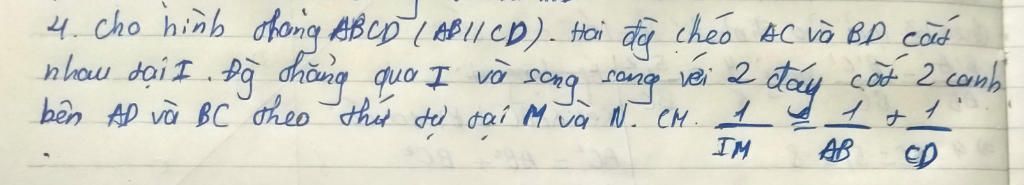 4. Cho hình thang ABCD (AB//CD). Hai đg chéo AC và BD cắt
nhau tại I. Đg thẳng qua I và song song với 2 đáy cắt 2 cạnh
bên AD và BC theo thứ tự tại M và N. CM. 1/IM = 1/AB + 1/CD